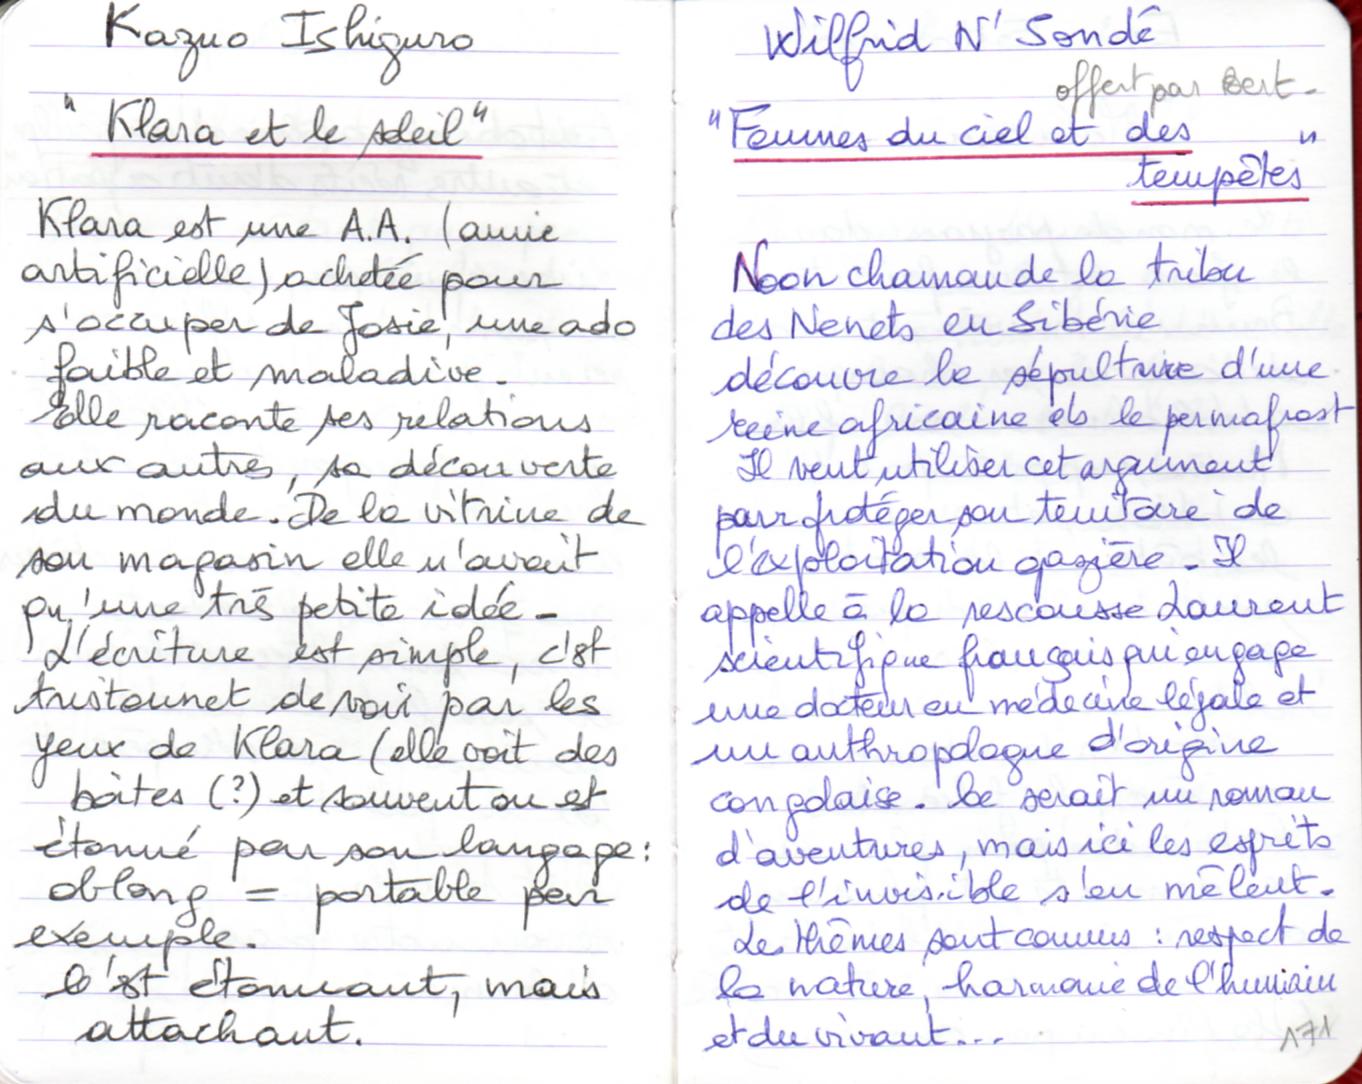 Kazuo Ishiguro
"Klara et le soleil"
Klara est une A.A. (amie
artificielle) achetée pour
s'occuper de Josie, une ado
faible et maladive.
Elle raconte ses relations
aux autres, sa découverte
du monde. De la vitrine de
son magasin elle n'avait
qu'une très petite idée -
L'écriture est simple, c'est
tristounet de voir par les
yeux de Klara (elle voit des
boîtes (?) et souvent on est
étonné par son langage :
oblong = portable par
exemple.
C'est étonnant, mais
attachant.
Wilfrid N'Sondé
offert par Bert -
"Femmes du ciel et des
tempêtes"
Noon chaman de la tribu
des Nenets en Sibérie
découvre la sépulture d'une
reine africaine ds le permafrost
Il veut utiliser cet argument
pour protéger son territoire de
l'exploitation gazière - Il
appelle à la rescousse Laurent
scientifique français qui engage
une docteur en médecine légale et
un anthropologue d'origine
congolaise. Ce serait un roman
d'aventures, mais ici les esprits
de l'invisible s'en mêlent.
Les thèmes sont connus : respect de
la nature, harmonie de l'humain
et du vivant...
171